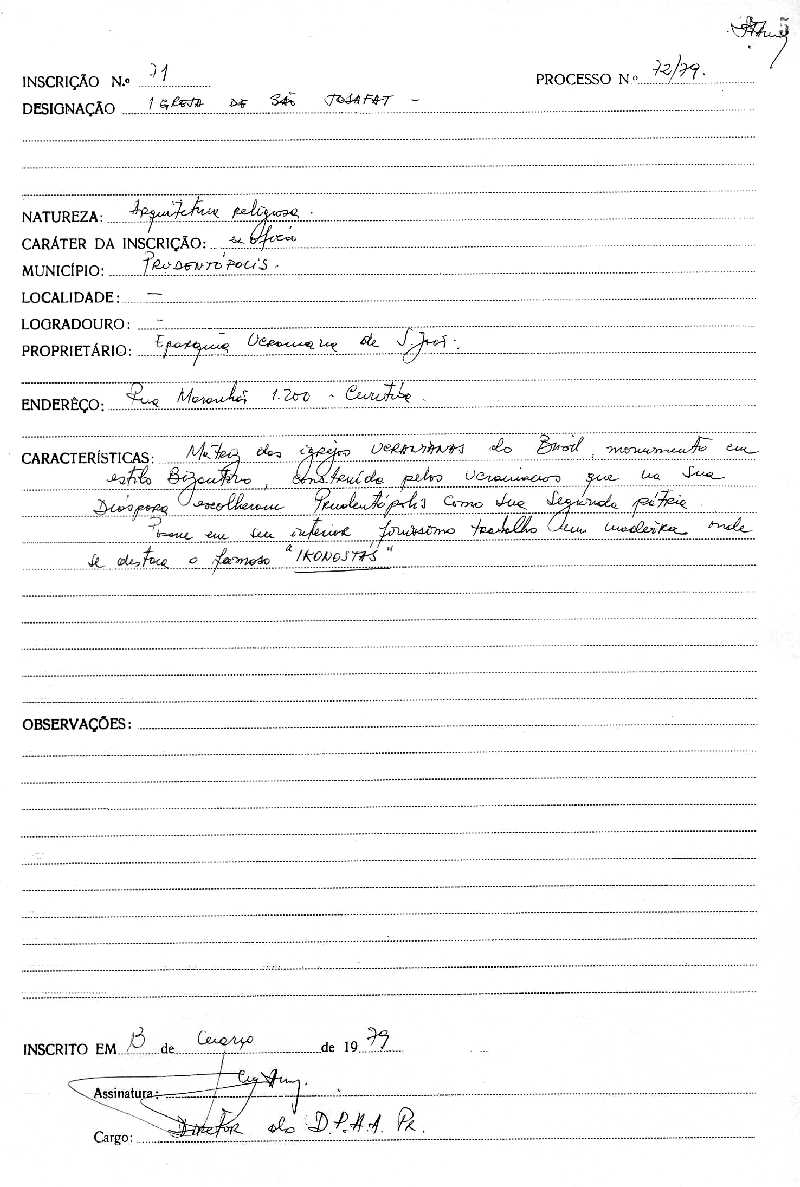 INSCRIÇÃO N.º 71 PROCESSO N.º 72/79.
DESIGNAÇÃO IGREJA DE SÃO JOSAFAT -
NATUREZA: Arquitetura religiosa.
CARÁTER DA INSCRIÇÃO: ex Ofício
MUNICÍPIO: PRUDENTÓPOLIS.
LOCALIDADE: —
LOGRADOURO: -
PROPRIETÁRIO: Eparquia Ucraniana de S. José.
ENDERÊÇO: Rua Maranhão 1.200 - Curitiba.
CARACTERÍSTICAS: Matriz das igrejas UCRANIANAS do Brasil, monumento em
estilo Bizantino, construída pelos ucranianos que na sua
Diáspora escolheram Prudentópolis como sua segunda pátria.
em seu interior, trabalho em madeira, onde
se destaca o famoso "IKONOSTAS"
OBSERVAÇÕES:
INSCRITO EM de de 1979
Assinatura:
Cargo: Diretor do D.P.H.A. Pr.